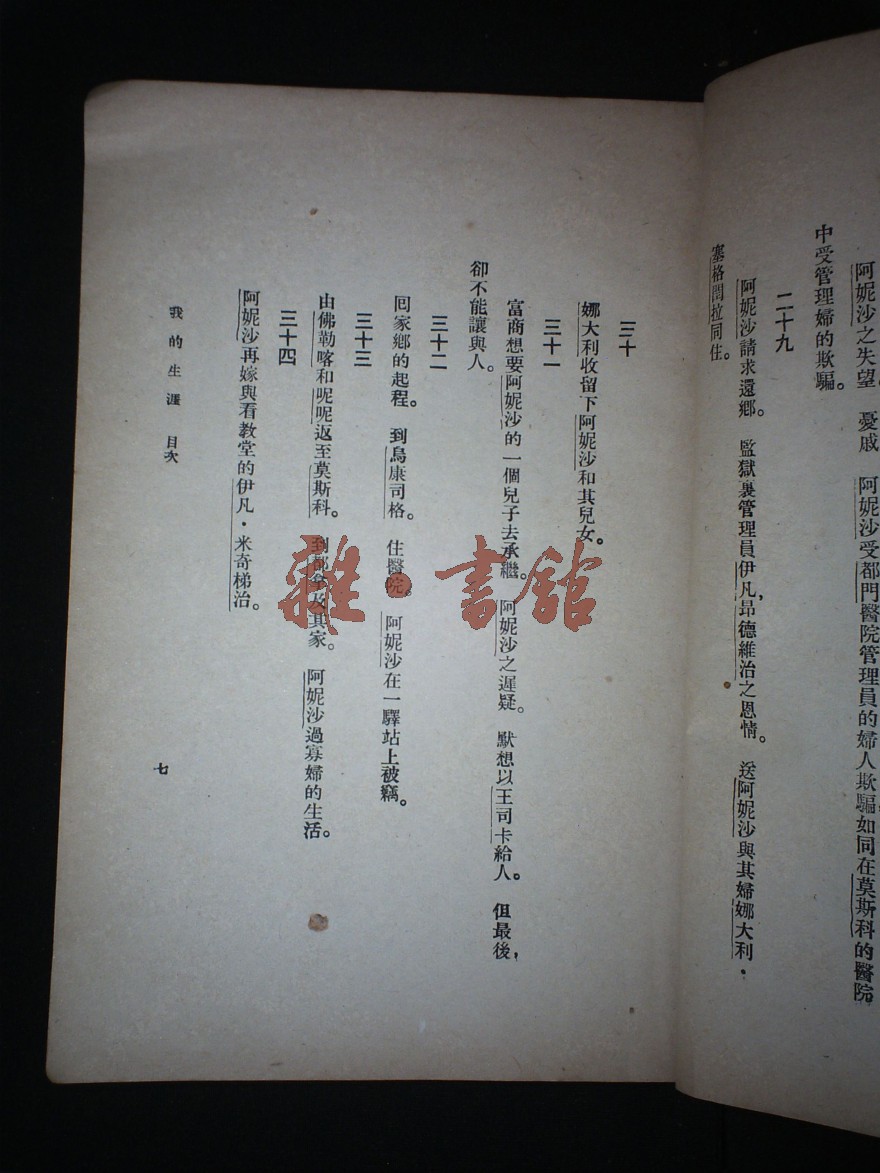 阿妮沙之失望。　憂戚　阿妮沙受都門醫院管理員的婦人欺騙如同在莫斯科的醫院
中受管理婦的欺騙。
二十九
阿妮沙請求還鄉。　監獄裏管理員伊凡，昂德維治之恩情。　送阿妮沙與其婦娜大利・
塞格閏拉同住。
三十
娜大利收留下阿妮沙和其兒女。
三十一
富商想要阿妮沙的一個兒子去承繼。　阿妮沙之遲疑。　默想以王司卡給人。　但最後，
卻不能讓與人。
三十二
囘家鄉的起程。　到烏康司格。　住醫院。　阿妮沙在一驛站上被竊。
三十三
由佛勒喀和呢呢返至莫斯科。　到都拿及其家。　阿妮沙過寡婦的生活。
三十四
阿妮沙再嫁與看教堂的伊凡・米奇梯治。
我的生涯　目次
七
雜・書館